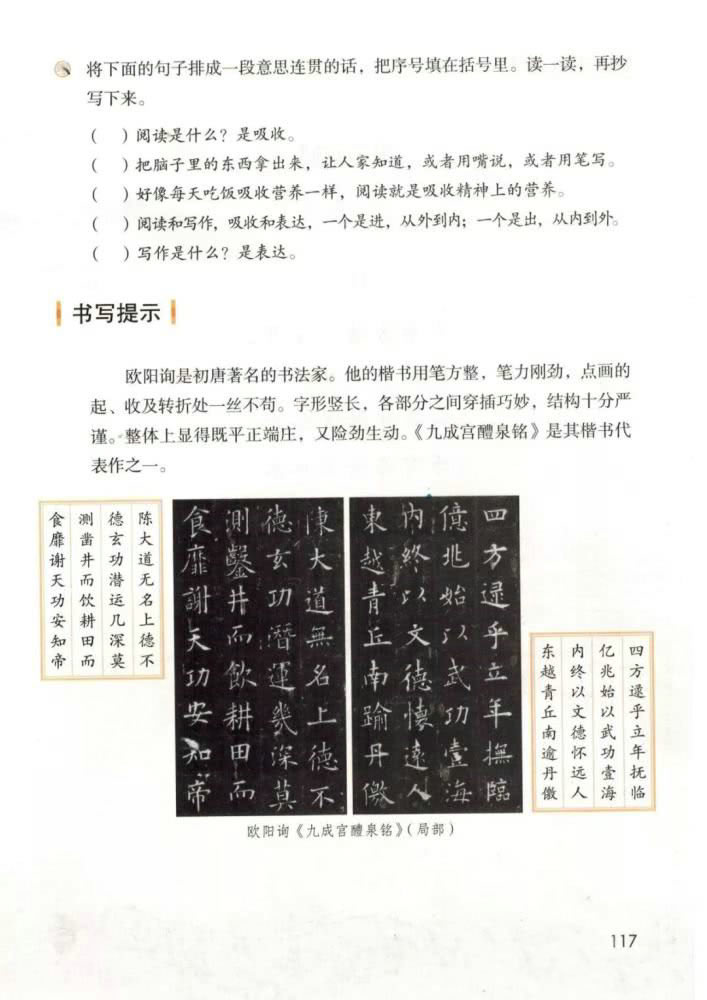 将下面的句子排成一段意思连贯的话，把序号填在括号里。读一读，再抄
写下来。
（　）阅读是什么？是吸收。
（　）把脑子里的东西拿出来，让人家知道，或者用嘴说，或者用笔写。
（　）好像每天吃饭吸收营养一样，阅读就是吸收精神上的营养。
（　）阅读和写作，吸收和表达，一个是进，从外到内；一个是出，从内到外。
（　）写作是什么？是表达。
书写提示
欧阳询是初唐著名的书法家。他的楷书用笔方整，笔力刚劲，点画的
起、收及转折处一丝不苟。字形竖长，各部分之间穿插巧妙，结构十分严
谨。整体上显得既平正端庄，又险劲生动。《九成宫醴泉铭》是其楷书代
表作之一。
四方遝乎立年抚临
亿兆始以武功壹海
内终以文德怀远人
东越青丘南逾丹徼
四方遝乎立年撫臨
億兆始以武功壹海
内終以文德懷遠人
東越青丘南踰丹徼
陳大道無名上德不
德玄功潛運幾深莫
測鑿井而飲耕田而
食靡謝天功安知帝
陈大道无名上德不
德玄功潜运几深莫
测凿井而饮耕田而
食靡谢天功安知帝
欧阳询《九成宫醴泉铭》（局部）
117